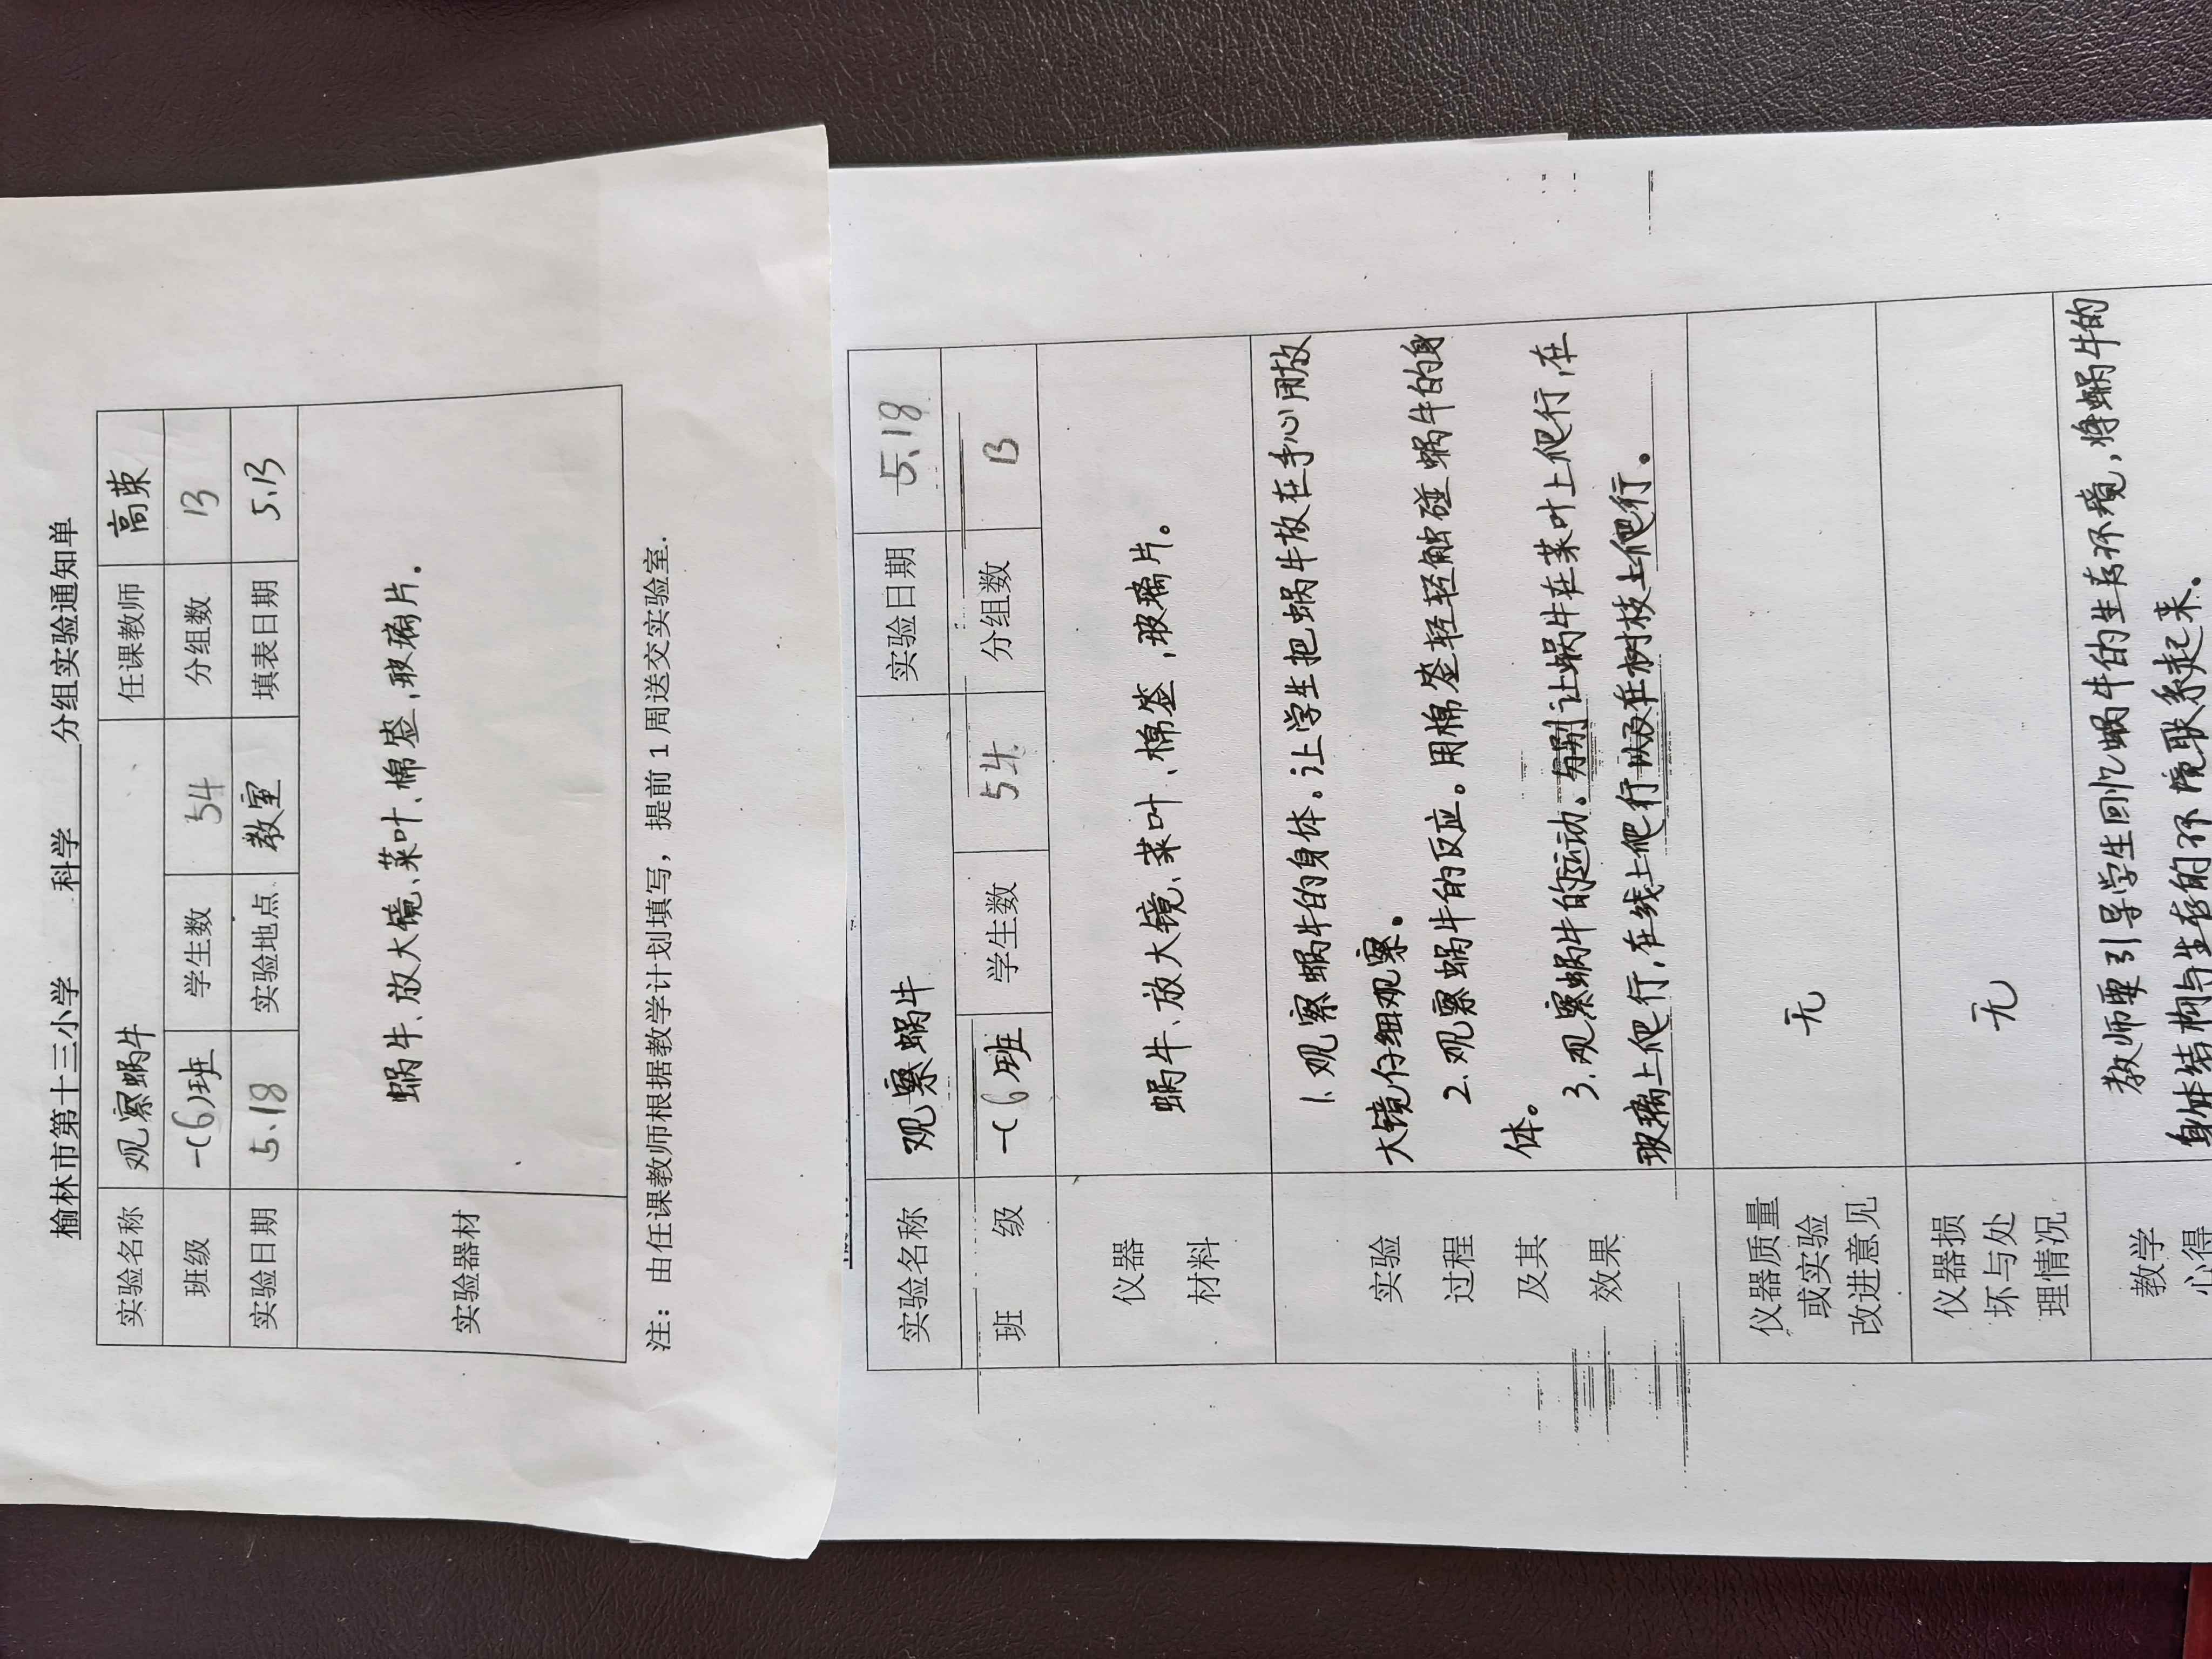 榆林市第十三小学 科学 分组实验通知单
实验名称 观察蜗牛 任课教师 高荣
班级 一(6)班 学生数 54 分组数 13
实验日期 5.18 实验地点 教室 填表日期 5.13
实验器材 蜗牛、放大镜、菜叶、棉签,玻璃片。
注：由任课教师根据教学计划填写，提前 1 周送交实验室.
实验名称 观察蜗牛 实验日期 5.18
班 级 一(6)班 学生数 54 分组数 13
仪器
材料
蜗牛、放大镜、菜叶、棉签,玻璃片。
实验
过程
及其
效果
1.观察蜗牛的身体。让学生把蜗牛放在手心用放
大镜仔细观察。
2.观察蜗牛的反应。用棉签轻轻触碰蜗牛的身
体。
3.观察蜗牛的运动。分别让蜗牛在菜叶上爬行,在
玻璃上爬行,在线上爬行以及在树枝上爬行。
仪器质量
或实验
改进意见
无
仪器损
坏与处
理情况
无
教学
心得
教师要引导学生回忆蜗牛的生存环境,将蜗牛的
身体结构与生存的环境联系起来。